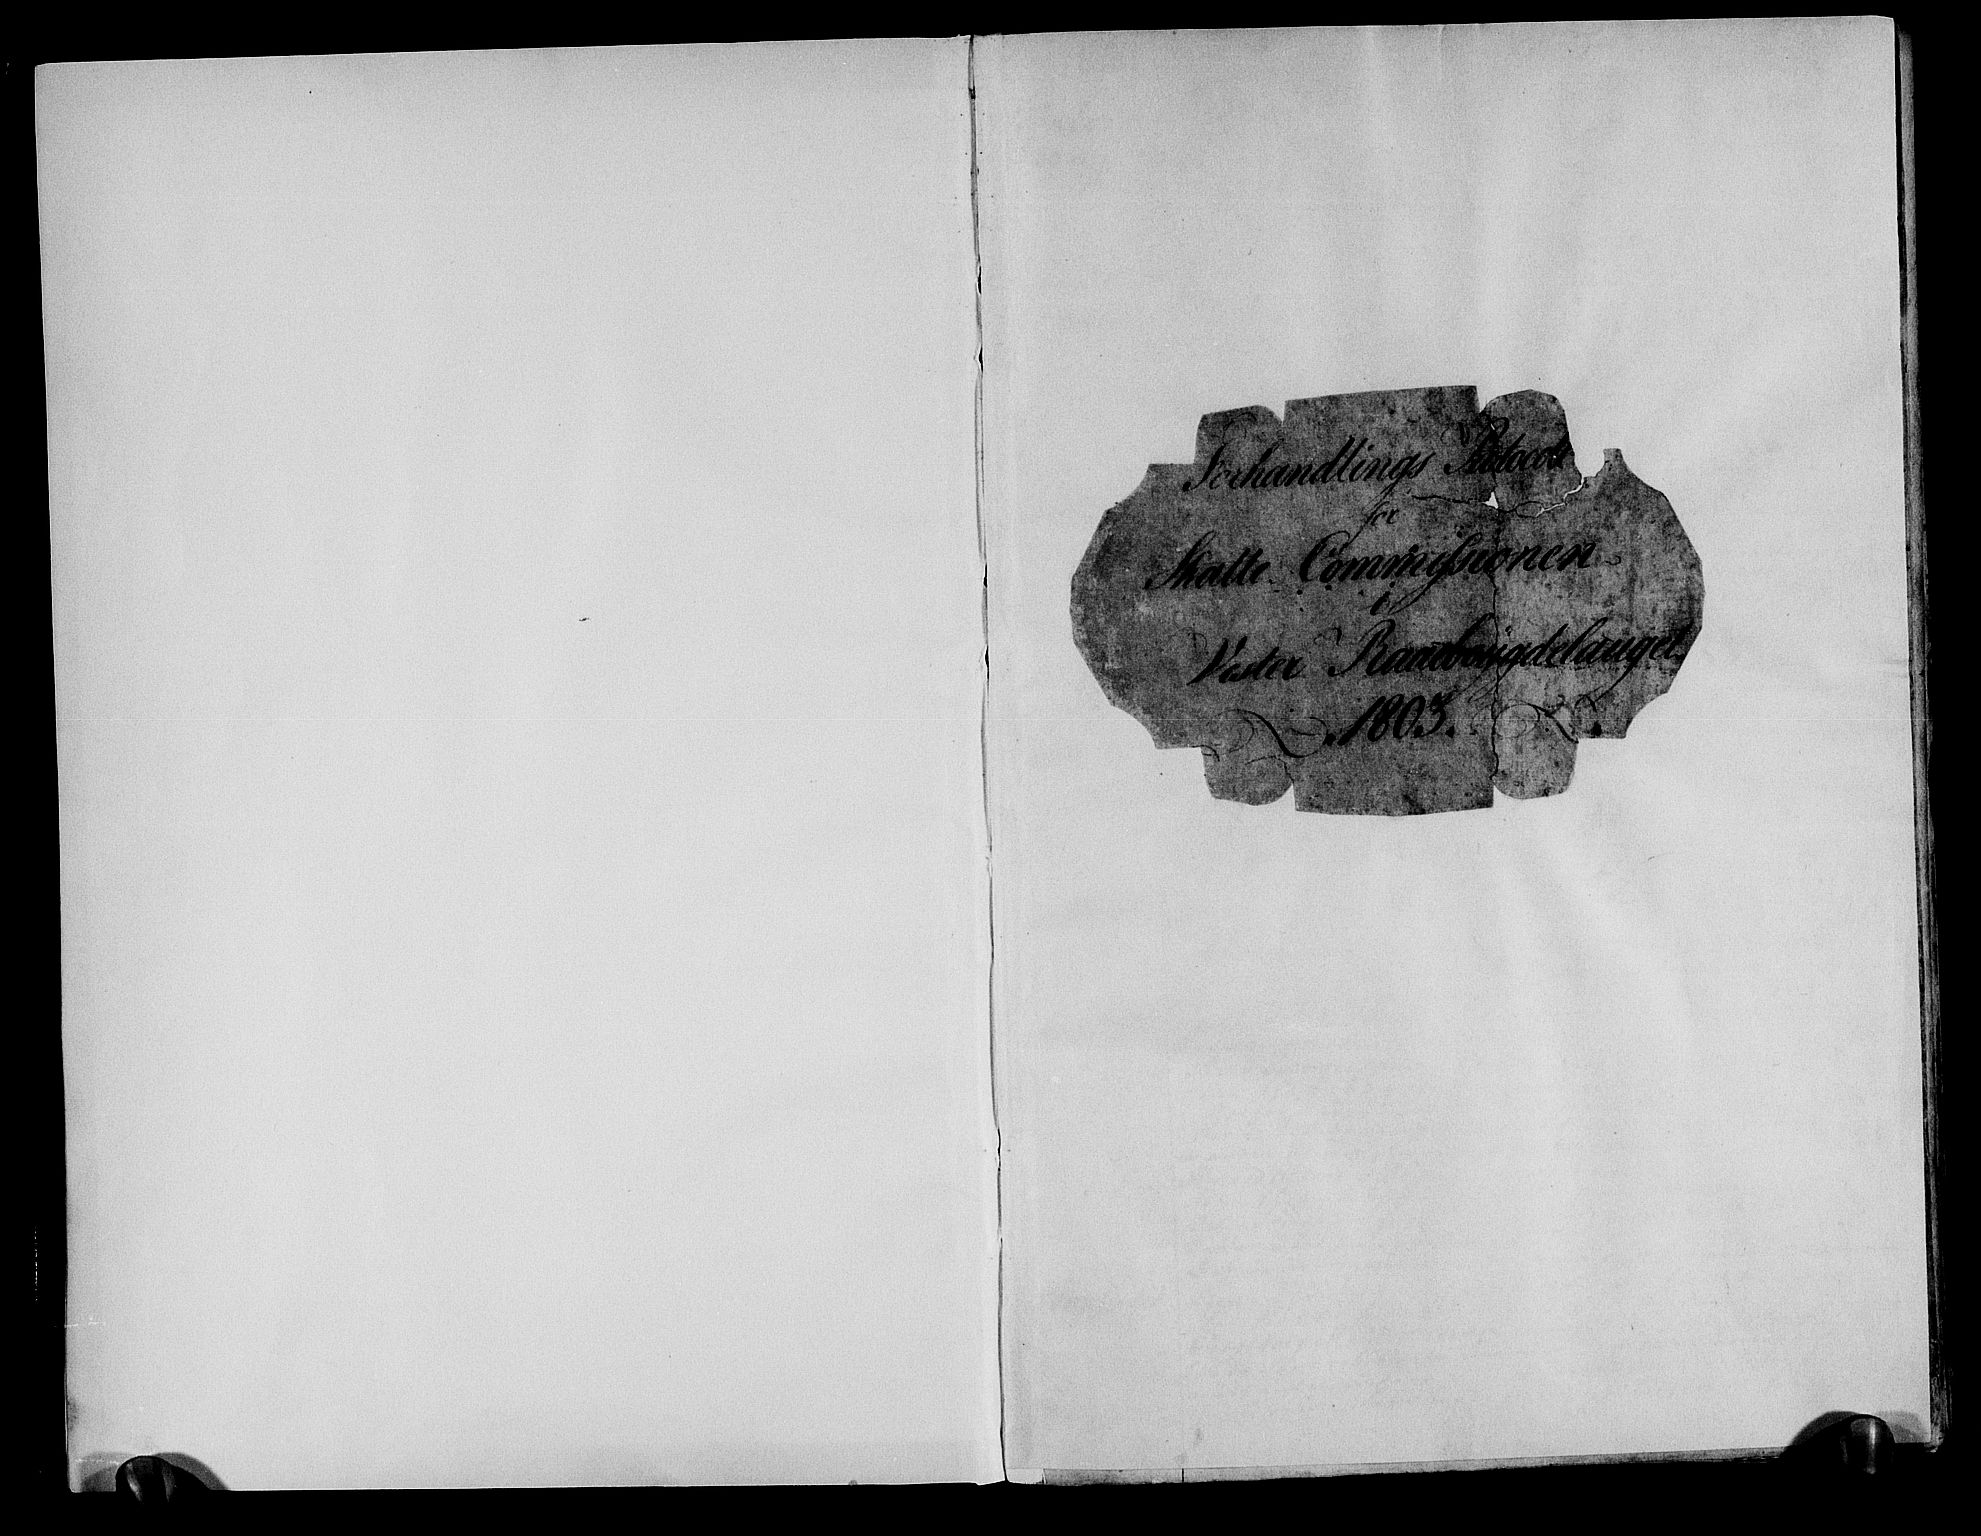 Forhandlings Protocoll
for
Skatte Commissionen
i
Vester Raabøigdelauget
1803.